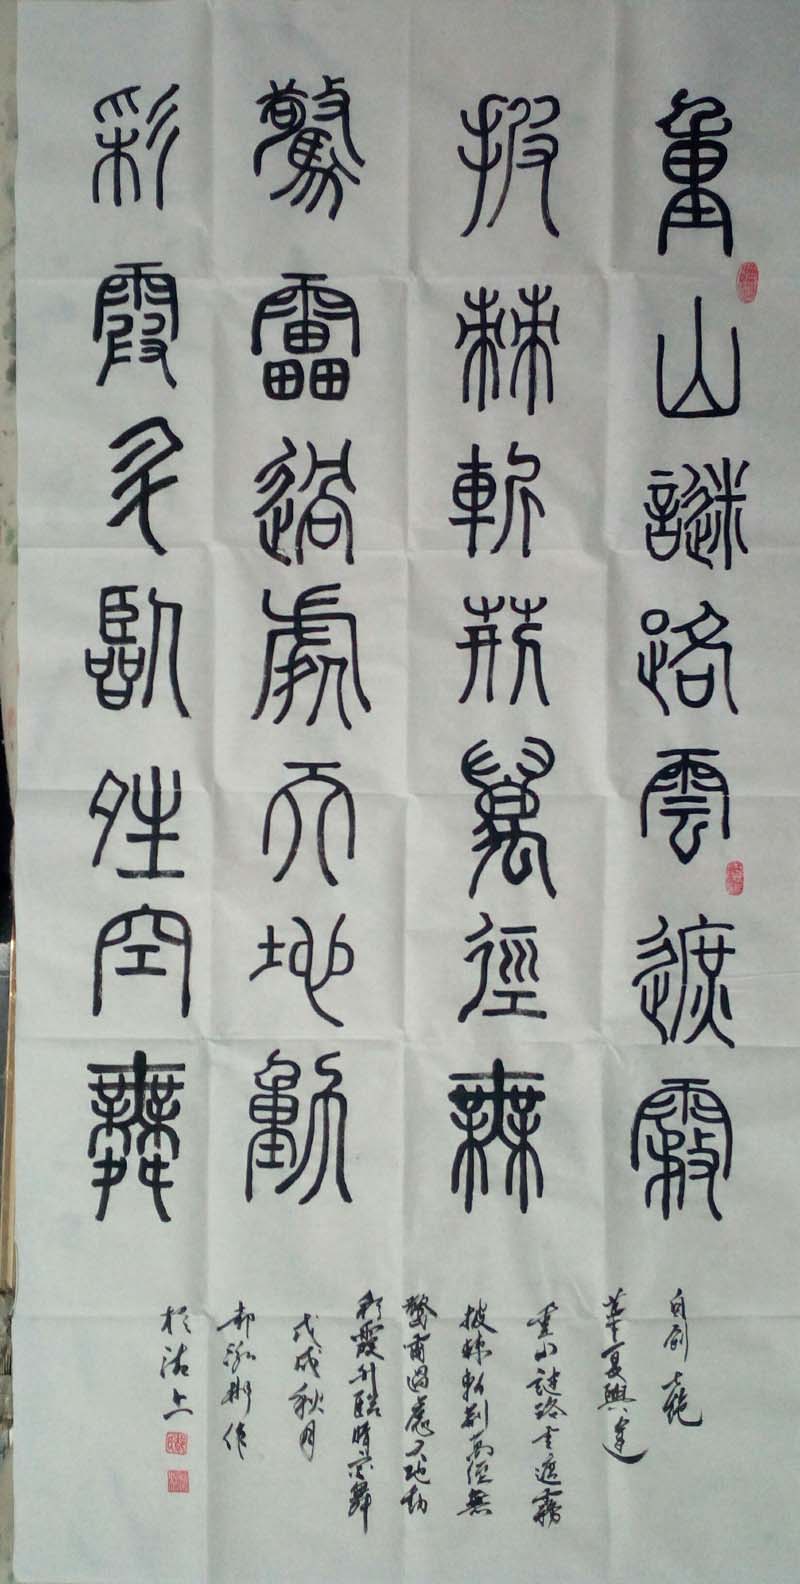 重山謎路雲遮霧
披棘斬荊萬徑無
驚雷過處天地動
彩霞升臨時空舞
自創七絕
華夏興
重山謎路雲遮霧
披棘斬荊萬徑無
驚雷過處天地動
彩霞升臨時空舞
戊戌秋月
郝泓彬作
於沽上